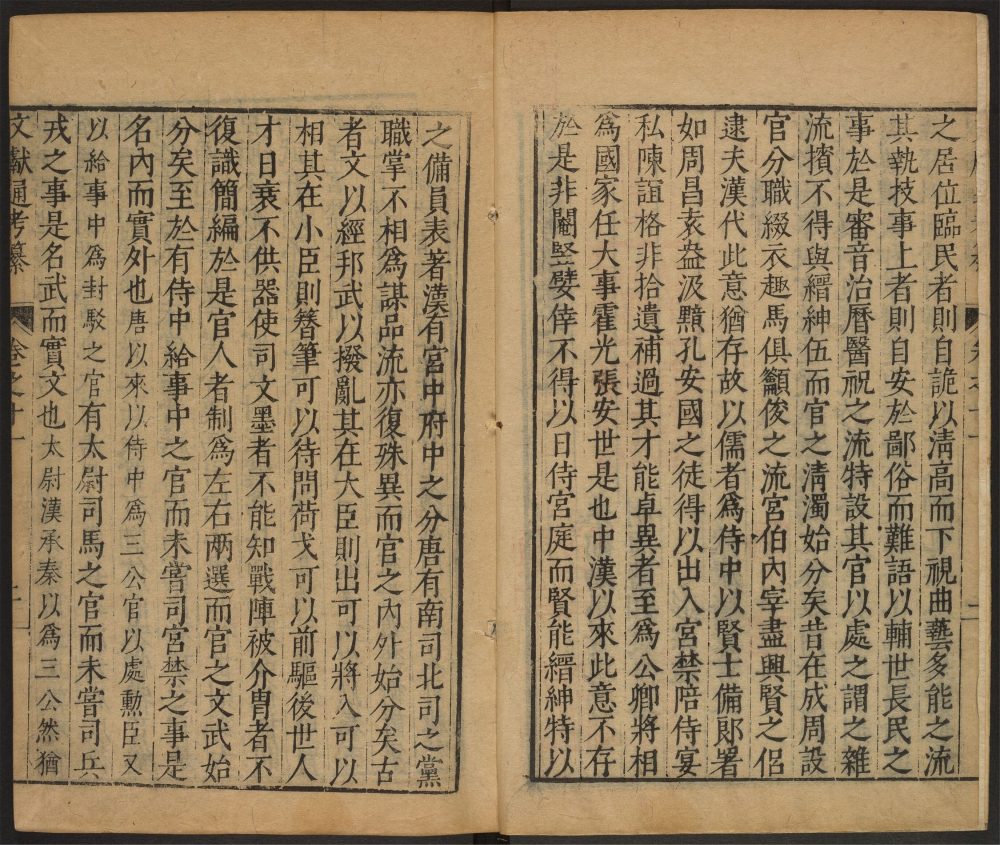 之居位臨民者則自詭以清高而下視曲藝多能之流
其執技事上者則自安於鄙俗而難語以輔世長民之
事於是審音治曆醫祝之流特設其官以處之謂之雜
流擯不得與縉紳伍而官之清濁始分矣昔在成周設
官分職綴衣趣馬俱籲俊之流宮伯內宰盡興賢之侶
逮夫漢代此意猶存故以儒者為侍中以賢士備郎署
如周昌袁盎汲黯孔安國之徒得以出入宮禁陪侍宴
私陳誼格非拾遺補過其才能卓異者至為公卿將相
為國家任大事霍光張安世是也中漢以來此意不存
於是非閹豎嬖倖不得以日侍宮庭而賢能縉紳特以
之備員表著漢有宮中府中之分唐有南司北司之黨
職掌不相為謀品流亦復殊異而官之內外始分矣古
者文以經邦武以撥亂其在大臣則出可以將入可以
相其在小臣則簪筆可以待問荷戈可以前驅後世人
才日衰不供器使司文墨者不能知戰陣被介冑者不
復識簡編於是官人者制為左右兩選而官之文武始
分矣至於有侍中給事中之官而未嘗司宮禁之事是
名內而實外也唐以來以侍中為三公官以處勳臣又
以給事中為封駁之官有太尉司馬之官而未嘗司兵
戎之事是名武而實文也太尉漢承秦以為三公然猶
文獻通考纂 卷之十一